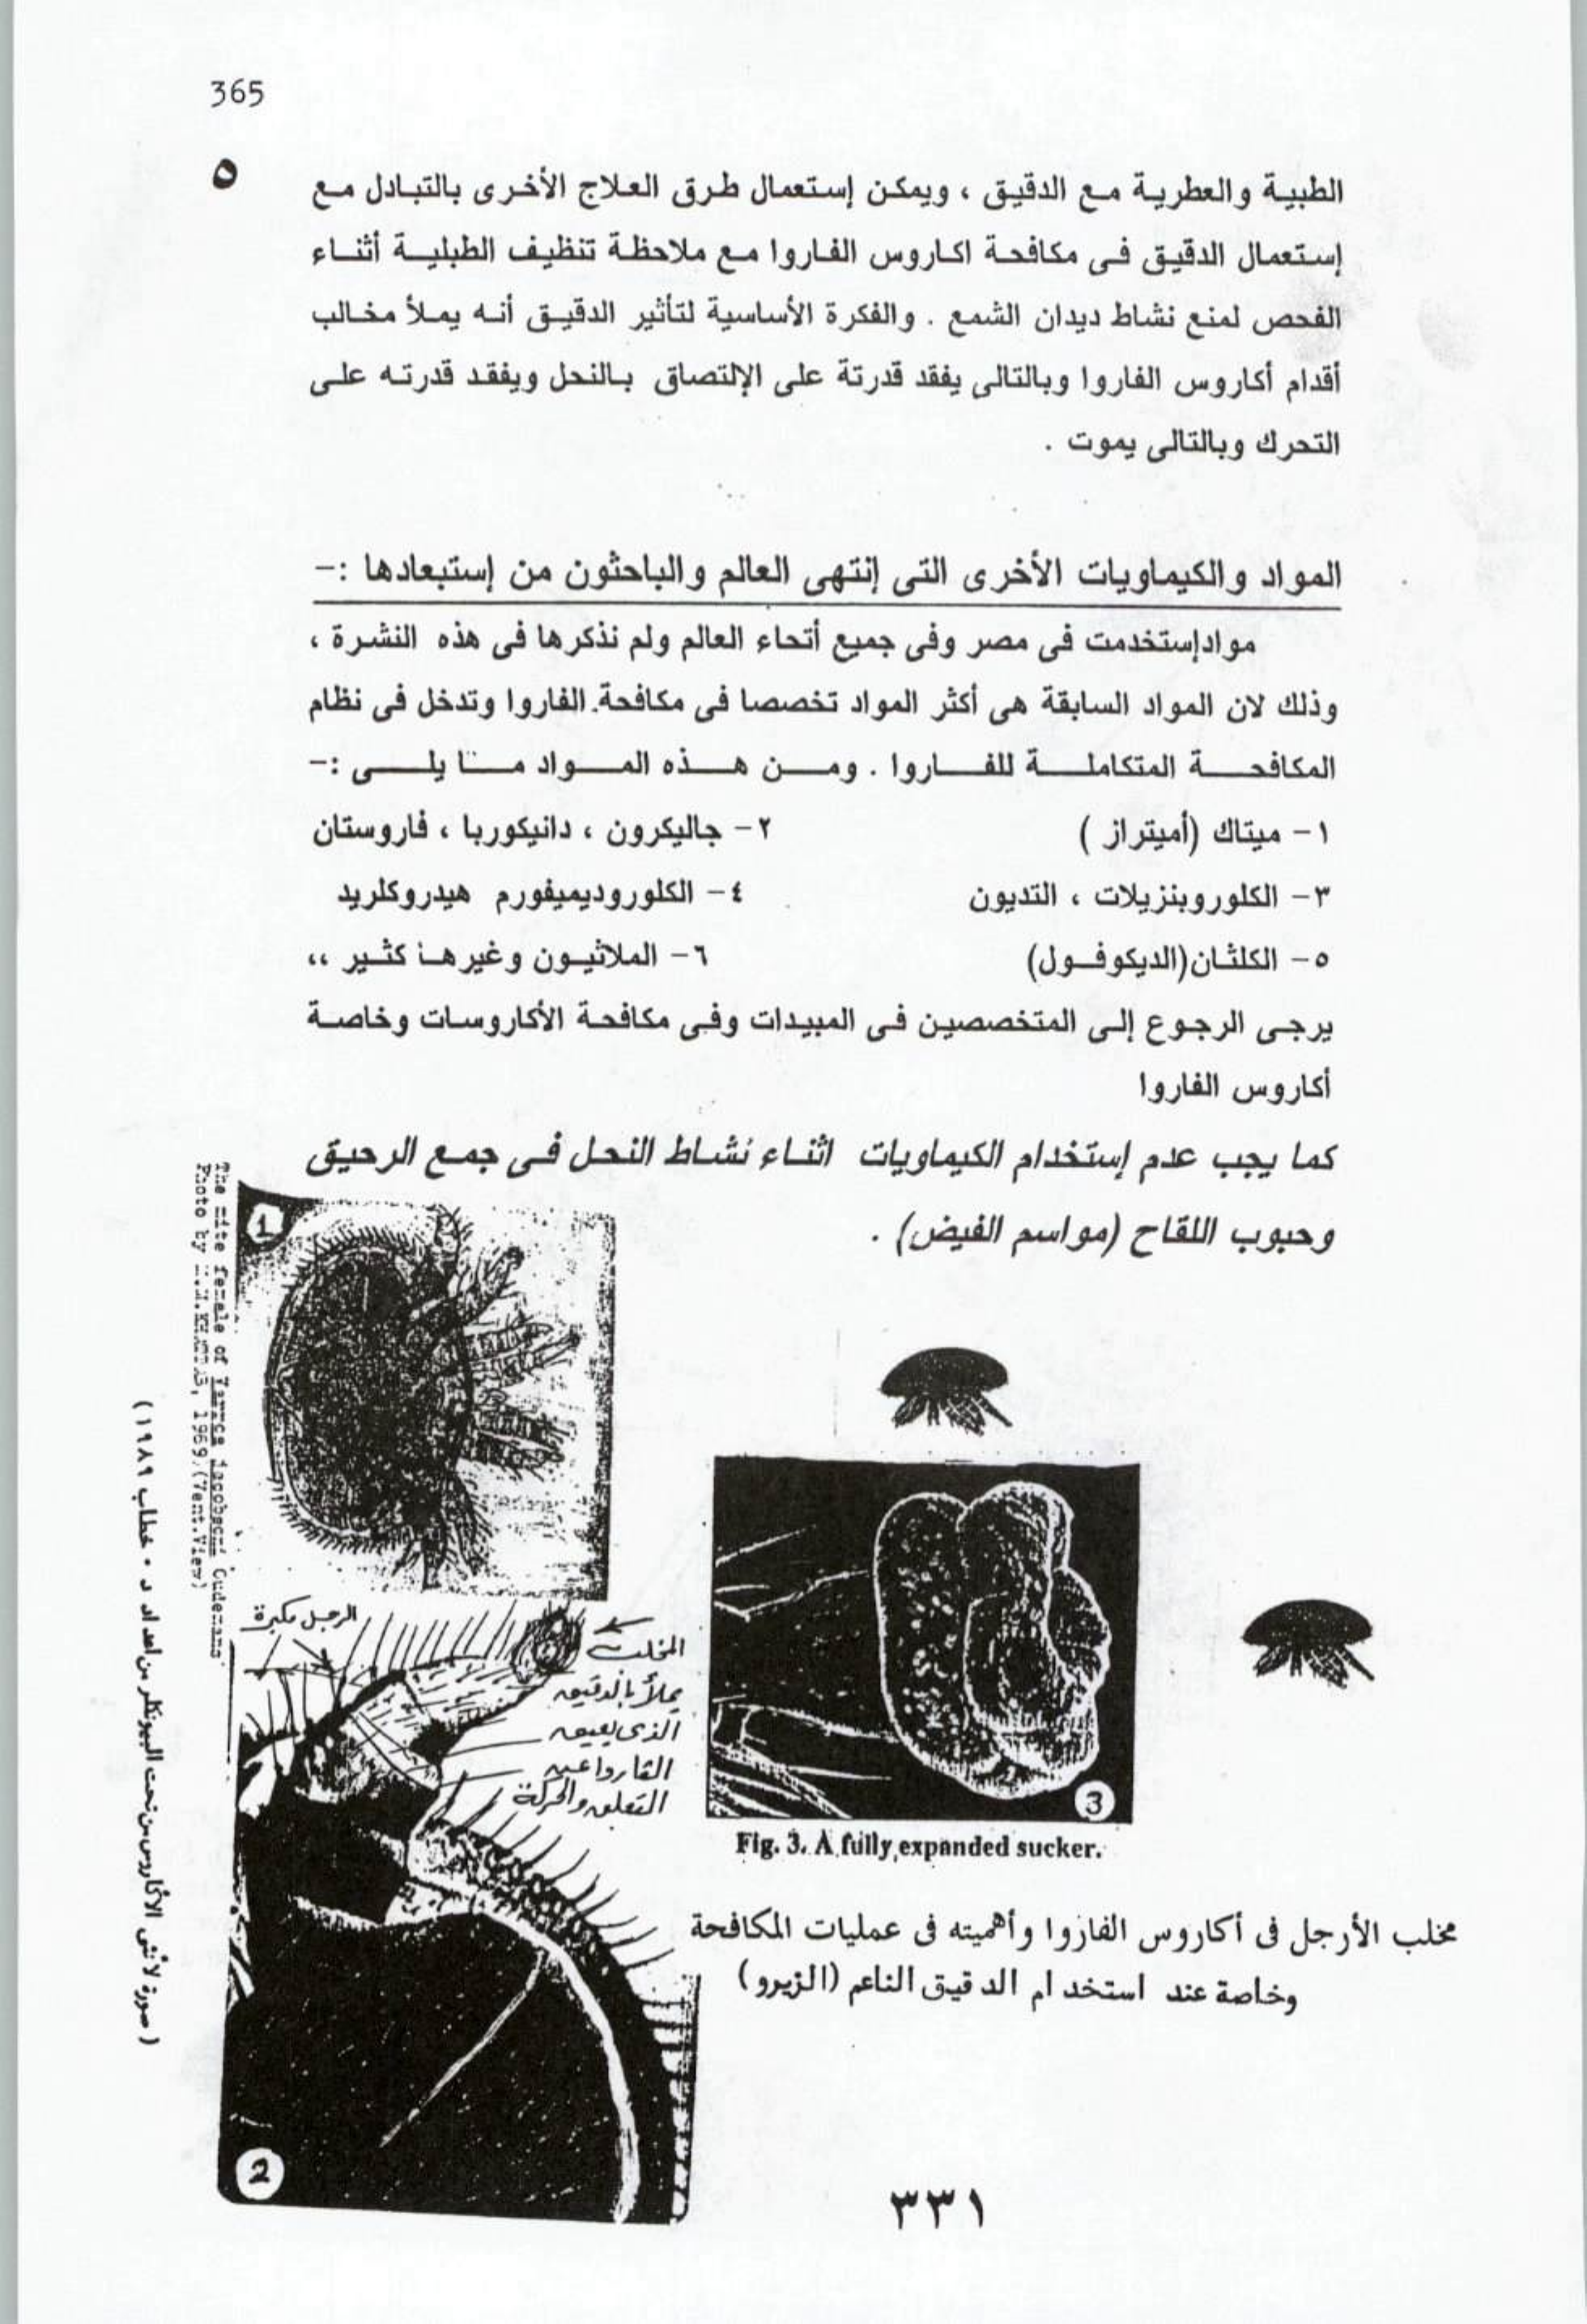 365
٥
الطبية والعطرية مع الدقيق ، ويمكن إستعمال طرق العلاج الأخرى بالتبادل مع
إستعمال الدقيق فى مكافحة اكاروس الفاروا مع ملاحظة تنظيف الطبلية أثناء
الفحص لمنع نشاط ديدان الشمع . والفكرة الأساسية لتأثير الدقيق أنه يملأ مخالب
أقدام أكاروس الفاروا وبالتالى يفقد قدرتة على الإلتصاق بالنحل ويفقد قدرته على
التحرك وبالتالى يموت .
المواد والكيماويات الأخرى التى إنتهى العالم والباحثون من إستبعادها :-
مواد إستخدمت فى مصر وفى جميع أتحاء العالم ولم نذكرها فى هذه النشرة ،
وذلك لان المواد السابقة هى أكثر المواد تخصصا فى مكافحة الفاروا وتدخل فى نظام
المكافحة المتكاملة للفاروا . ومن هذه المواد ما يلى :-
١- ميتاك (أميتراز ) ٢- جاليكرون ، دانيكوربا ، فاروستان
٣- الكلوروبنزيلات ، التديون ٤- الكلوروديميفورم هيدروكلريد
٥- الكلثان(الديكوفول) ٦- الملاثيون وغيرها كثير ،،
يرجى الرجوع إلى المتخصصين فى المبيدات وفى مكافحة الأكاروسات وخاصة
أكاروس الفاروا
كما يجب عدم إستخدام الكيماويات اثناء نشاط النحل فى جمع الرحيق
وحبوب اللقاح (مواسم الفيض) .
1
The mite female of Varroa jacobsoni Oudemans
Photo by 1989 (Vent.View)
(صورة لأنثى الاكاروس من تحت البيونكلر من اعداد د . خطاب ١٩٨٩)
الرجل مكبرة
المخلب
يملأ بالدقيق
الذى يعيق
الفاروا عن
التعلق والحركة
2
3
Fig. 3. A fully expanded sucker.
مخلب الأرجل فى أكاروس الفاروا وأهميته فى عمليات المكافحة
وخاصة عند استخدام الدقيق الناعم (الزيرو)
٣٣١